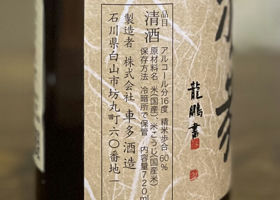 品目
清酒
アルコール分16度 精米歩合60%
原材料名 米(国産)、米こうじ(国産米)
保存方法 冷暗所で保管 内容量720m
製造者 株式会社 車多酒造
石川県白山市坊丸町六〇番地一
龍鵬書